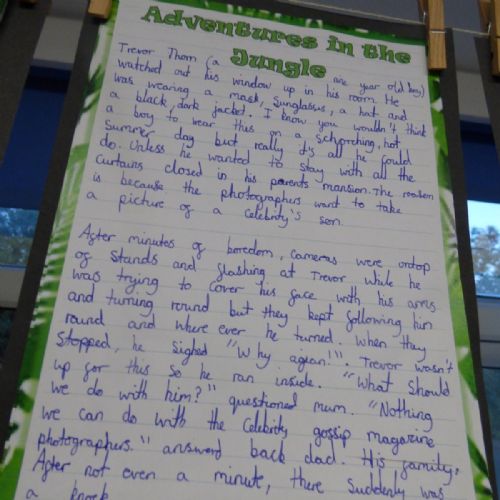 Adventures in the
Jungle
Trevor Thom (a one year old boy)
watched out his window up in his room. He
was wearing a mask, sunglasses, a hat and
a black, dark jacket. I know you wouldn't think
a boy to wear this on a schporching, hot
summer day but really it's all he could
do. Unless he wanted to stay with all the
curtains closed in his parents mansion. The reason
is because the photographers want to take
a picture of a celebrity's son.
After minutes of boredom, cameras were ontop
of stands and flashing at Trevor while he
was trying to cover his face with his arms
and turning round but they kept following him
round and where ever he turned. When they
stopped, he sighed "Why again!". Trevor wasn't
up for this so he ran inside. "What should
we do with him?" questioned mum. "Nothing
we can do with the celebrity gossip magazine
photographers." answerd back dad. His family.
After not even a minute, there suddenly was
a knock